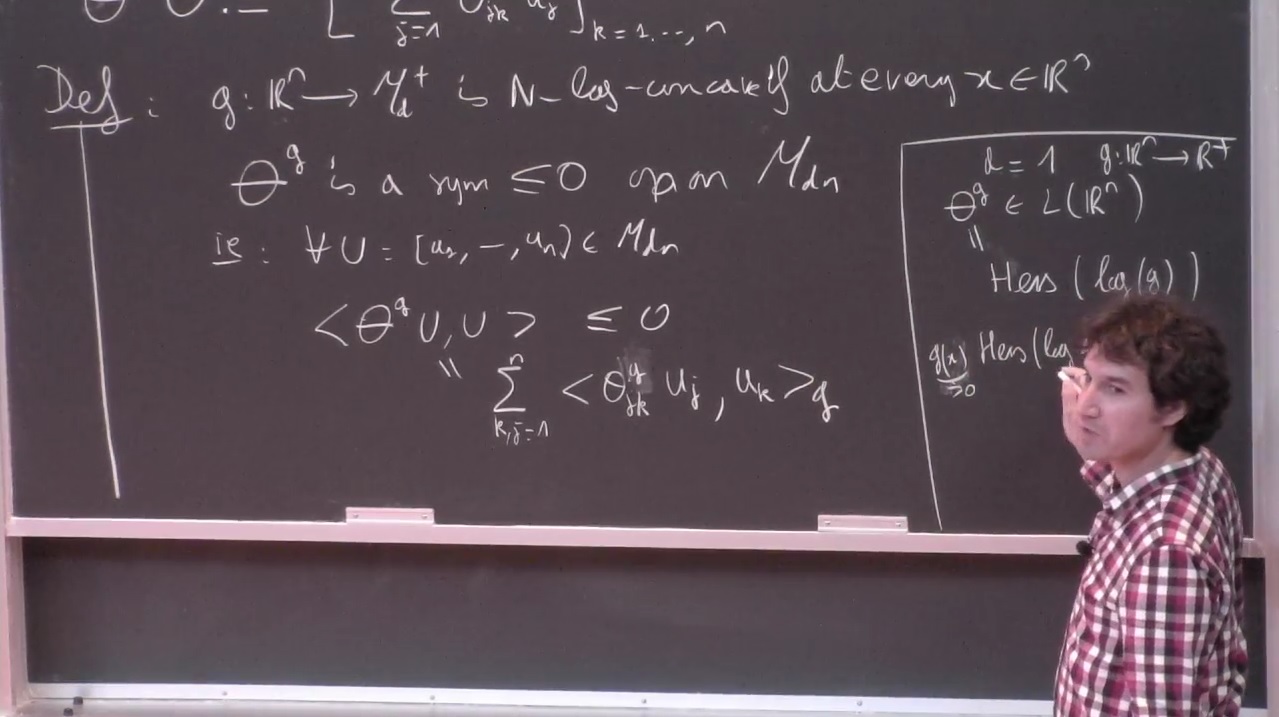 Θ U := [ Σ_{j=1} Θ_{jk} u_j ]_{k=1...,n}
Def: g: ℝⁿ → M_d⁺ is N-log-concave if at every x ∈ ℝⁿ
Θ^g is a sym ≤0 op on M_{dn}
ie: ∀ U = [u_1, –, u_n] ∈ M_{dn}
<Θ^g U, U> ≤ 0
= Σ_{k,j=1}^n <θ^g_{jk} u_j, u_k>_g
d = 1 g: ℝⁿ → ℝ⁺
Θ^g ∈ L(ℝⁿ)
=
Hess (log(g))
g(x) Hess(log
>0